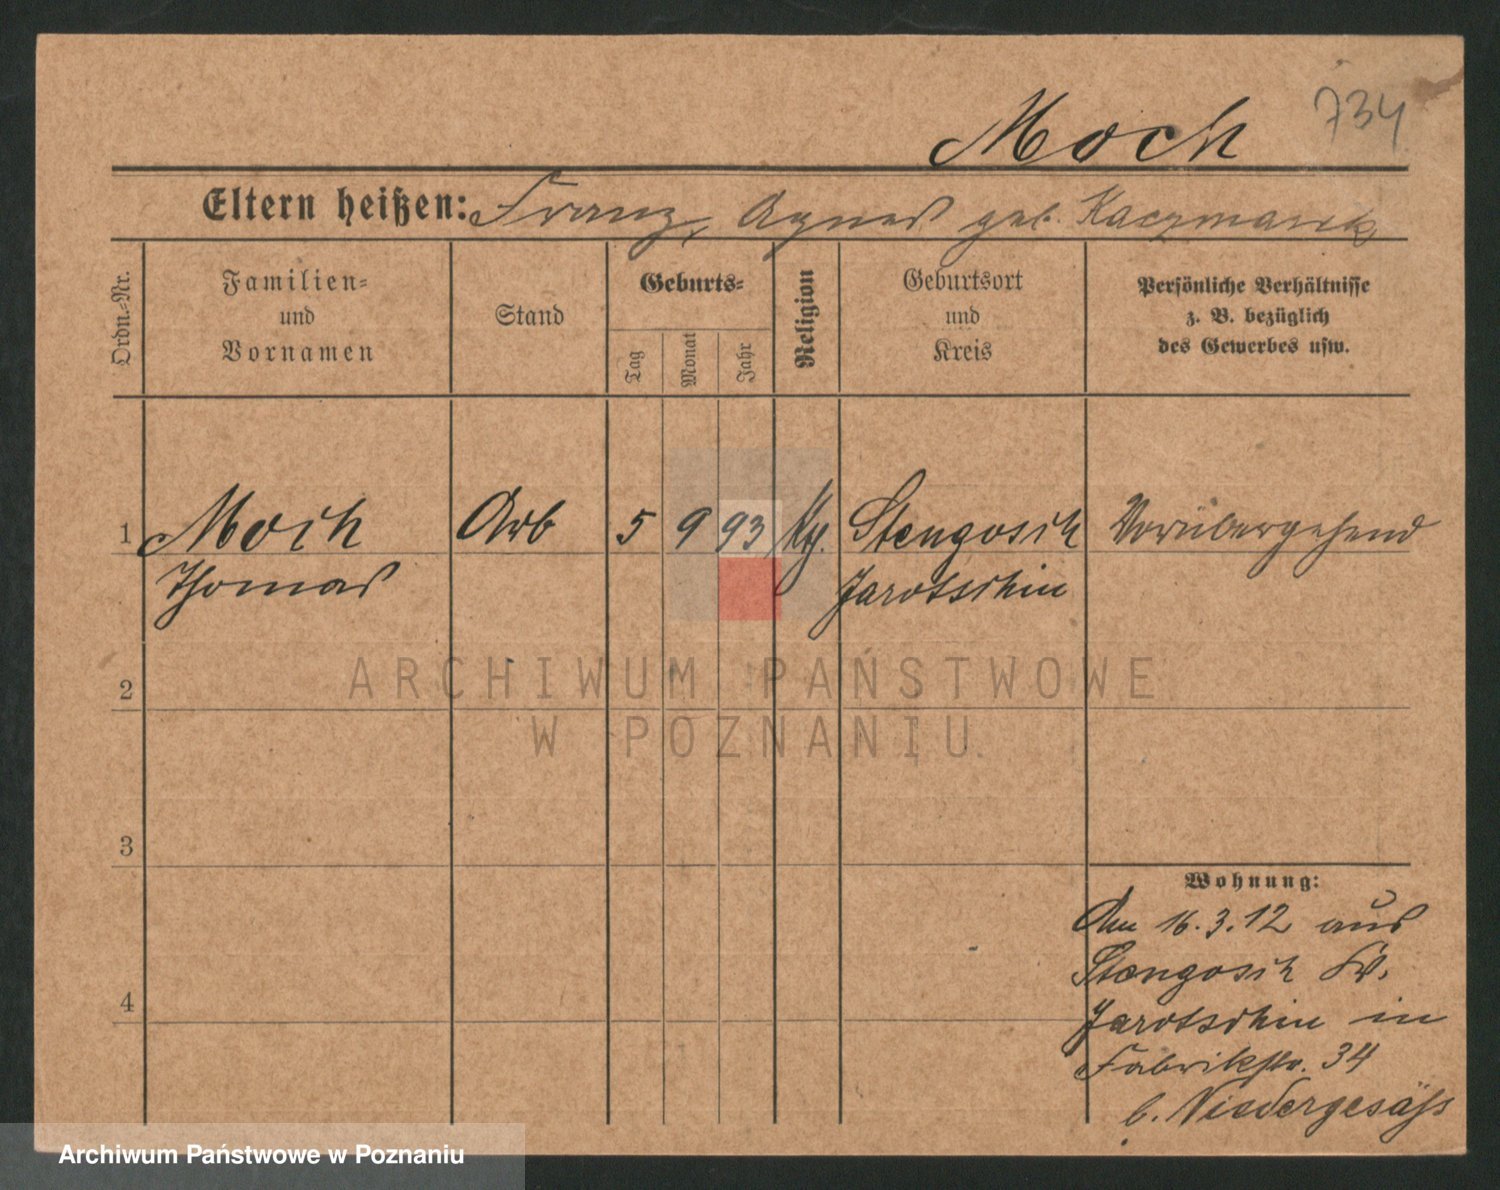 734
Moch
Eltern heißen: Franz, Agnes geb. Kaczmarek
Ordn.-Nr.
Familien-
und
Vornamen
Stand
Geburts-
Tag
Monat
Jahr
Religion
Geburtsort
und
Kreis
Persönliche Verhältnisse
z. B. bezüglich
des Gewerbes usw.
1 Moch Arb 5 9 93 Stengosch Vorübergehend
Thomas Jarotschin
ARCHIWUM PAŃSTWOWE
W POZNANIU
2
3
Wohnung:
Am 16.3.12 aus
Stengosch Kr.
4
Jarotschin in
Fabrikstr. 34
b. Niedergesäss
Archiwum Państwowe w Poznaniu